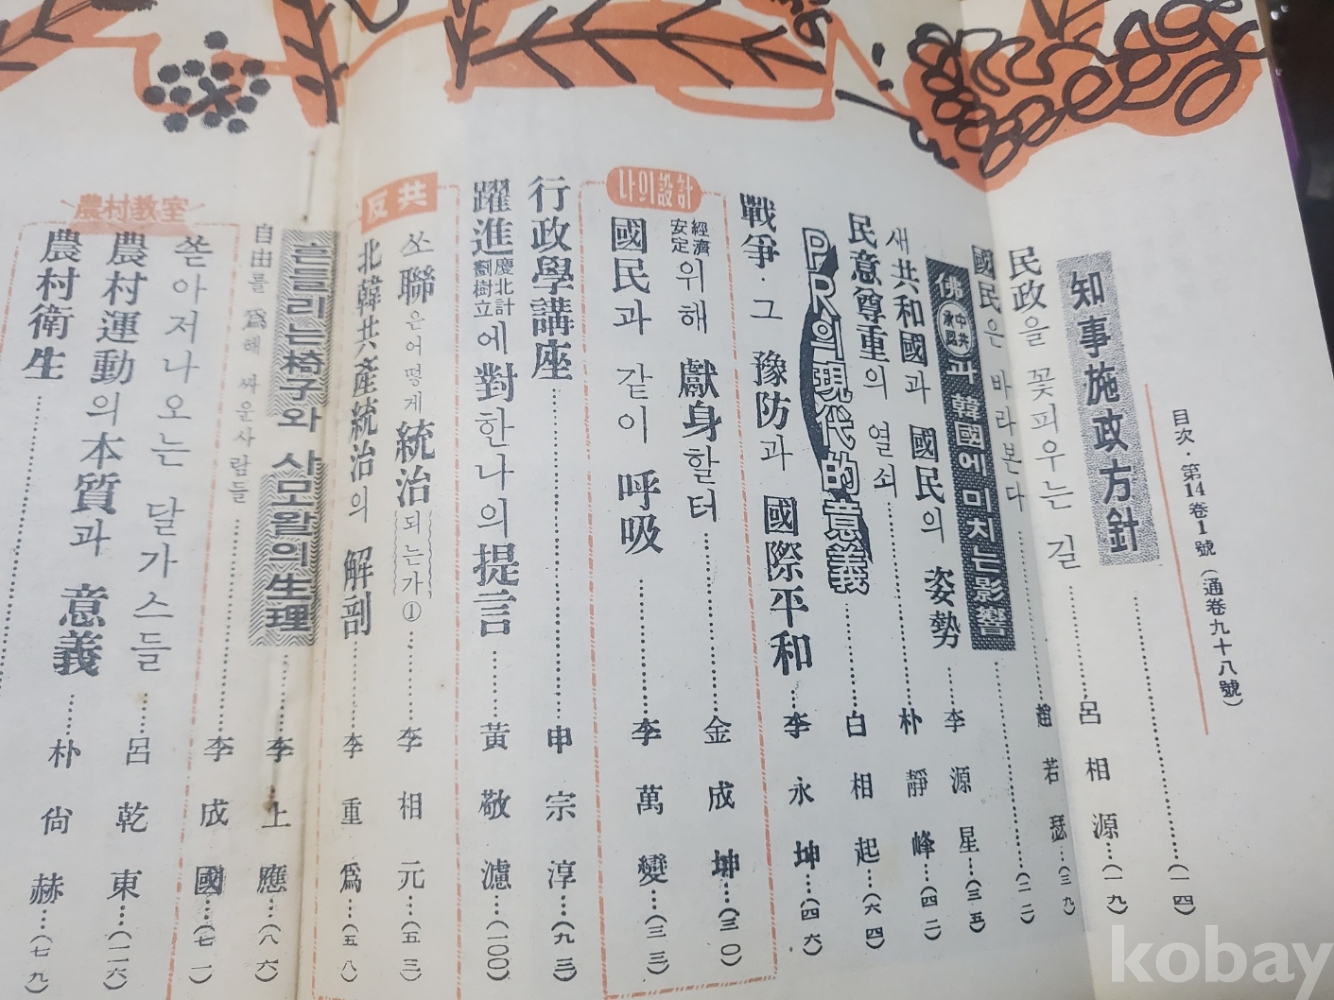 目次·第14卷1號(通卷九十八號)
知事施政方針……(一四)
民政을 꽃피우는 길……呂相源…(一九)
國民은 바라본다……趙若瑟…(三九)
佛 中共承認 과 韓國에 미치는 影響……(二二)
새共和國과 國民의 姿勢……李源星…(三五)
民意尊重의 열쇠……朴靜峰…(四二)
PR의 現代的意義……白相起…(六四)
戰爭·그 豫防과 國際平和…李永坤…(四六)
나의設計
經濟安定위해 獻身할터……金成坤…(三〇)
國民과 같이 呼吸……李萬變…(三三)
行政學講座……申宗淳…(九三)
躍進慶北計劃樹立에 對한 나의 提言……黃敬濾…(一〇〇)
反共
쏘聯은 어떻게 統治되는가①……李相元…(五三)
北韓共產統治의 解剖……李重爲…(五八)
흔들리는 椅子와 사모왈의 生理……李上應…(八六)
自由를 爲해 싸운사람들……李成國…(七一)
農村敎室
쏟아저나오는 달가스들
農村運動의 本質과 意義……呂乾東…(一一六)
農村衛生……朴尙赫…(七九)
kobay